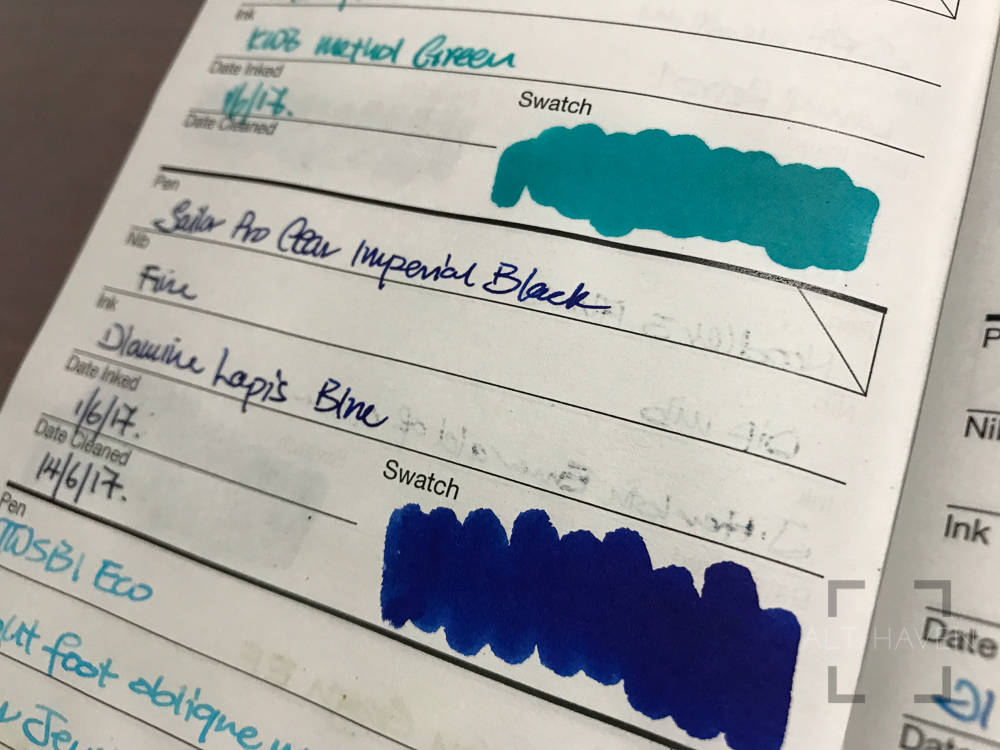 Ink
Green
Date Inked
1/6/17.
Date Cleaned
Swatch
Pen
Sailor Pro Gear Imperial Black
Nib
Fine
Ink
Diamine Lapis Blue
Date Inked
1/6/17.
Date Cleaned
14/6/17.
Swatch
Pen
TWSBI Eco
foot oblique
Nib
Ink
Date
Date
ALT. HAVEN